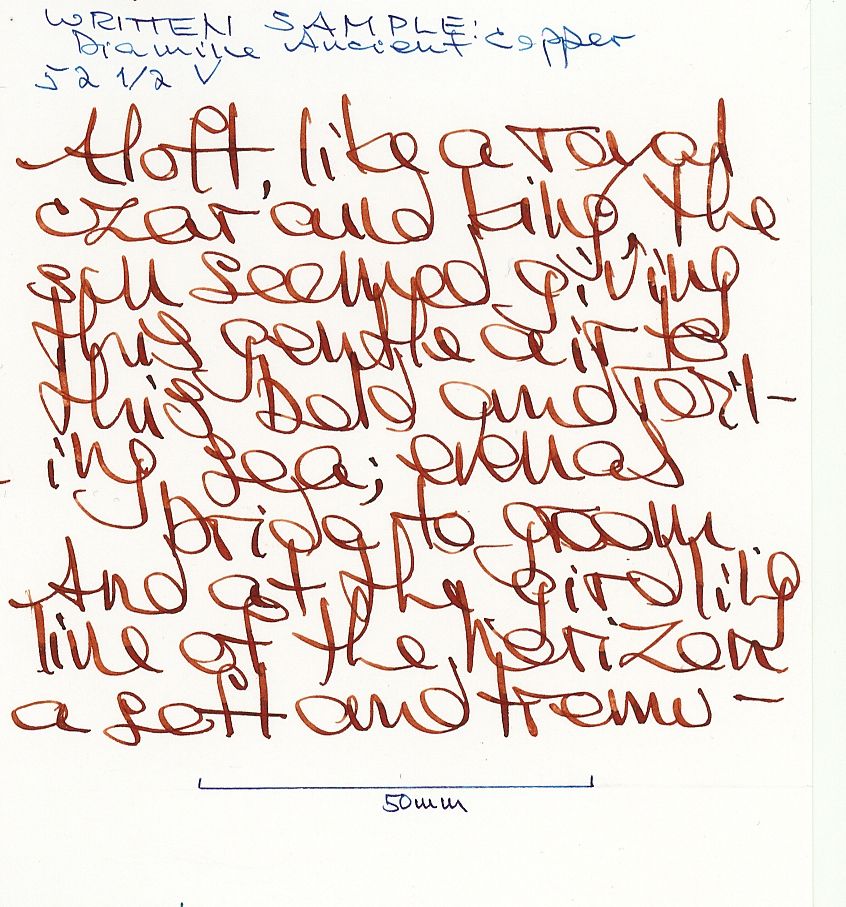 WRITTEN SAMPLE:
Diamine Ancient Copper
52 1/2 V
Aloft, like a royal
czar and king, the
sun seemed giving
this gentle air to
this bold and roll-
ing sea; even as
bride to groom.
And at the girdling
line of the horizon
a soft and tremu-
50mm